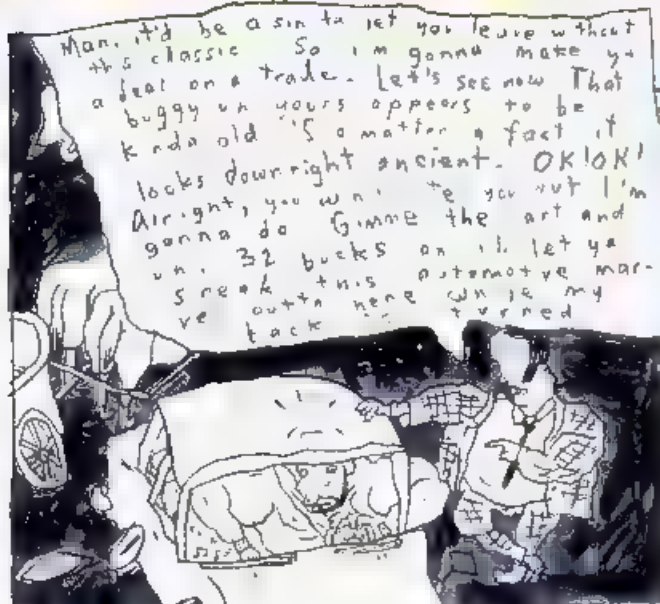 Man, it'd be a sin to let you leave without
this classic So im gonna make ya
a deal on a trade. Let's see now That
buggy uh yours appears to be
kinda old 'S a matter a fact it
looks downright ancient. OK! OK!
Alright, you win. I'm
gonna do Gimme the art and
uh. 32 bucks an let ya
sneak this automotive mar-
ve outta here while my
back is turned